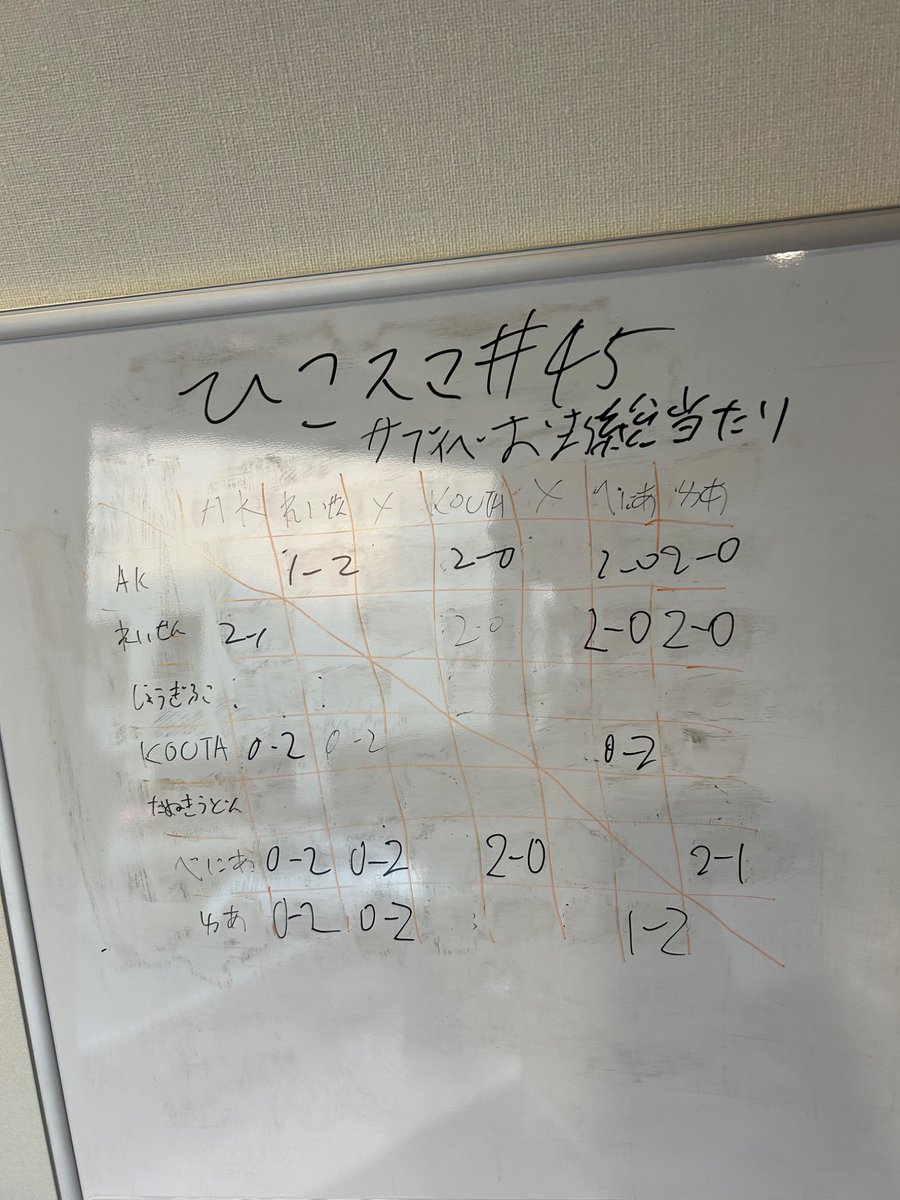 ひこスマ#45
サブイベおま総当たり
AK れいせん X KOUTA X べにあ ゆあ
AK 1-2 2-0 2-0 2-0
れいせん 2-1 2-0 2-0 2-0
じょうぎふこ
KOUTA 0-2 0-2 0-2
たぬきうどん
べにあ 0-2 0-2 2-0 2-1
ゆあ 0-2 0-2 1-2